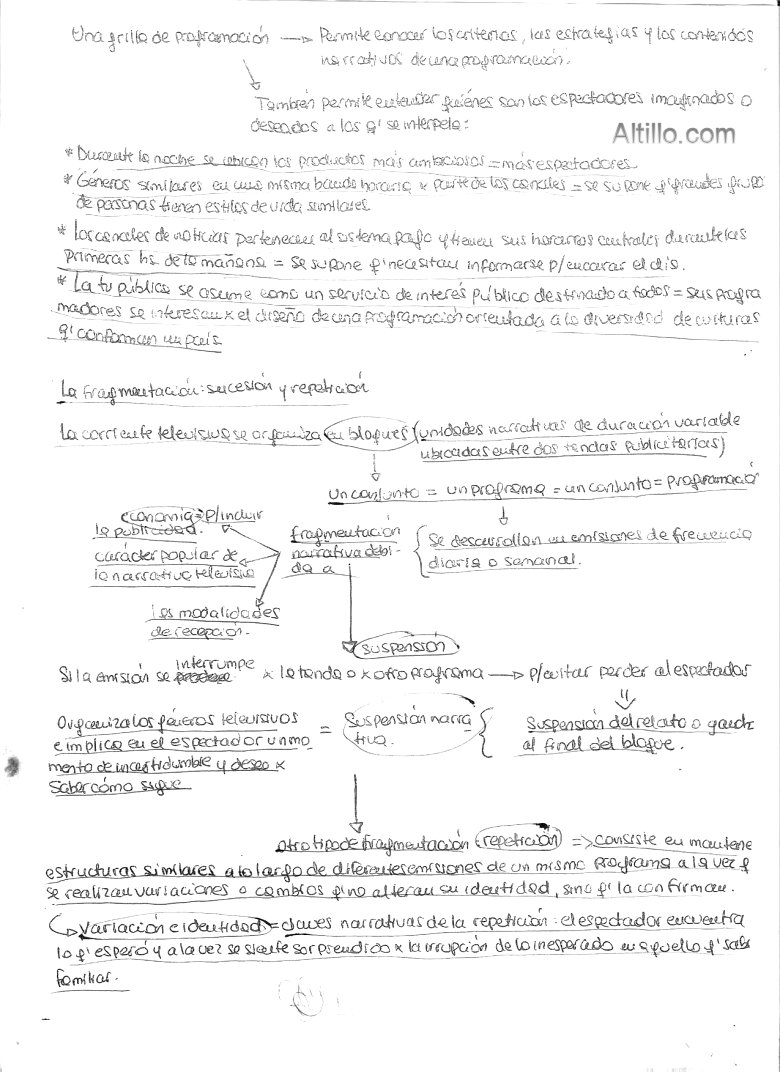 Una grilla de programación → Permite conocer los criterios, las estrategias y los contenidos
narrativos de una programación.
También permite entender quiénes son los espectadores imaginados o
deseados a los q' se interpela:
Altillo.com
* Durante la noche se ubican los productos más ambiciosos = más espectadores.
* Géneros similares en una misma banda horaria x parte de los canales = se supone q' grandes grupo
de personas tienen estilos de vida similares.
* Los canales de noticias pertenecen al sistema pago y tienen sus horarios centrales durante las
primeras hs. de la mañana = se supone q' necesitan informarse p/encarar el día.
* La tv pública se asume como un servicio de interés público destinado a todos = sus progra
madores se interesan x el diseño de una programación orientada a la diversidad de culturas
q' conforman un país.
La fragmentación: sucesión y repetición
La corriente televisiva se organiza en bloques (unidades narrativas de duración variable
ubicadas entre dos tandas publicitarias)
Un conjunto = un programa = un conjunto = programació
economía = p/incluir
la publicidad.
carácter popular de
la narrativa televisiva
las modalidades
de recepción.
fragmentación
narrativa debi-
da a
se desarrollan en emisiones de frecuencia
diaria o semanal.
suspensión
Si la emisión se interrumpe x la tanda o x otro programa → p/evitar perder al espectador
Suspensión del relato o gancho
al final del bloque.
Suspensión narra
tiva.
=
Organiza los géneros televisivos
e implica en el espectador un mo
mento de incertidumbre y deseo x
saber cómo sigue
otro tipo de fragmentación (repetición) => consiste en mantene
estructuras similares a lo largo de diferentes emisiones de un mismo programa a la vez q
se realizan variaciones o cambios q' no alteran su identidad, sino q' la confirman.
Variación e identidad = claves narrativas de la repetición: el espectador encuentra
lo q' esperó y a la vez se siente sorprendido x la irrupción de lo inesperado en aquello q' sabe
familiar.